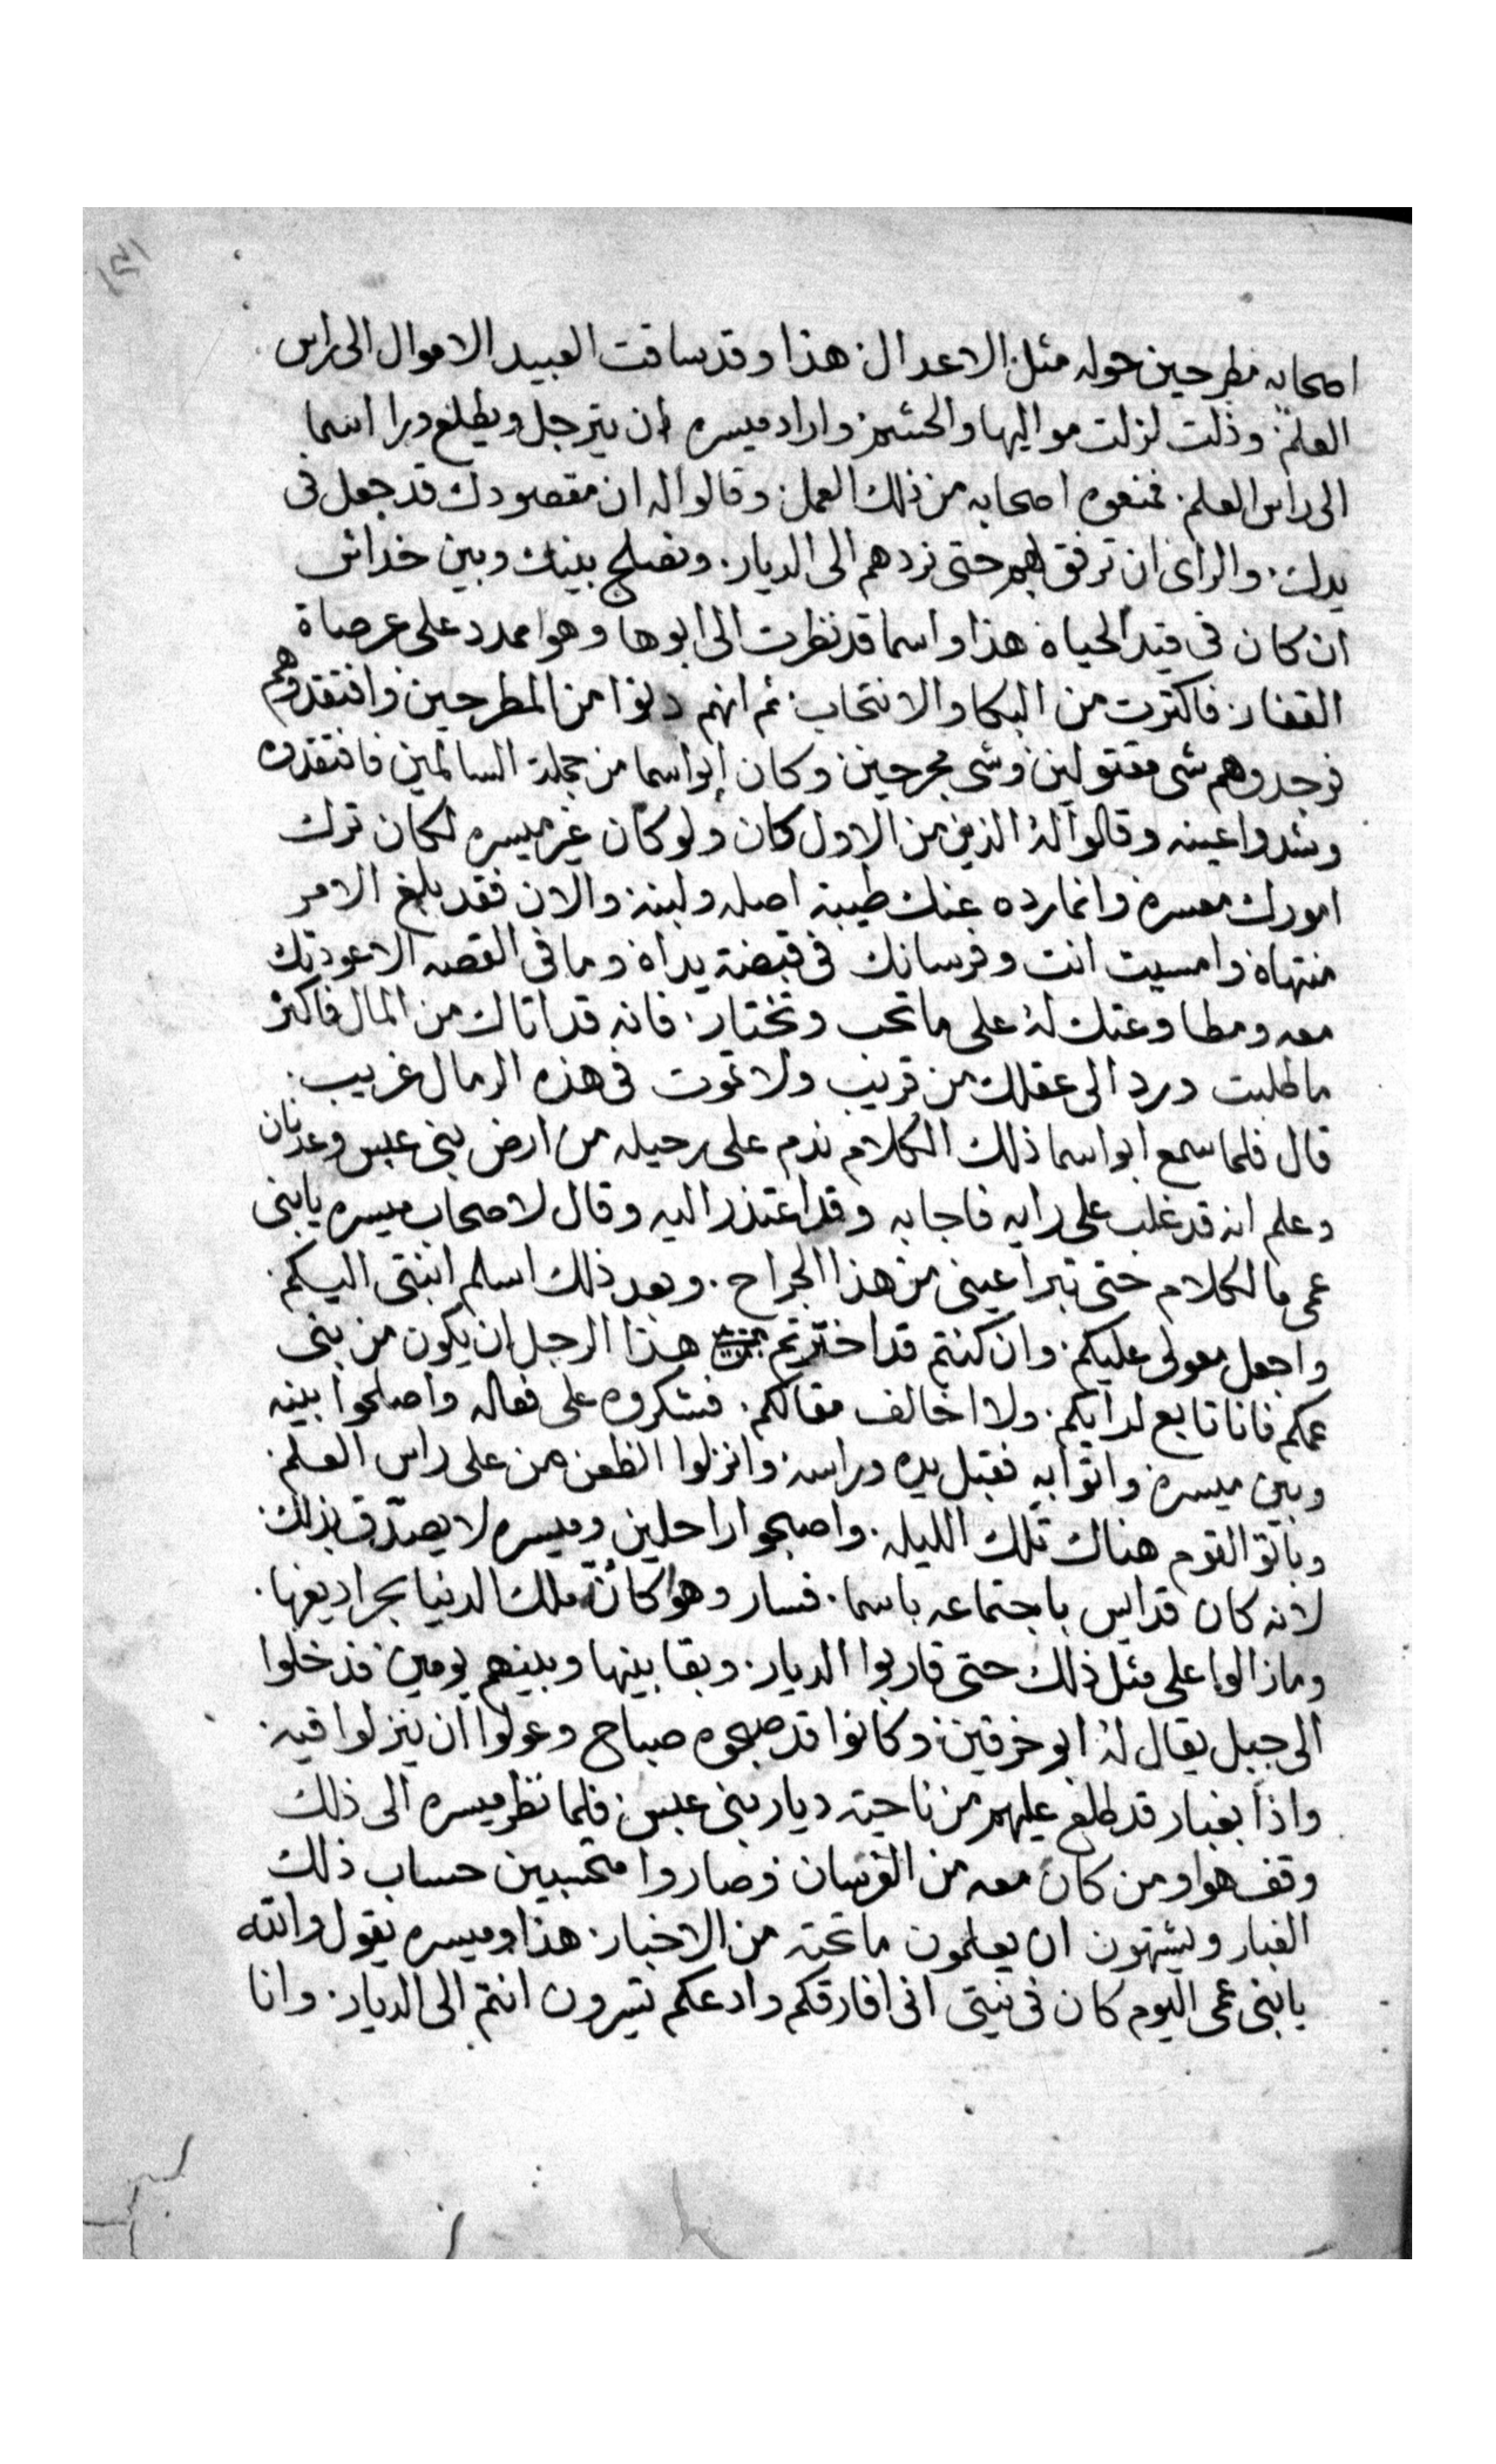 ١٣١
اصحابه مطرحين حوله مثل الاعدال هذا وقد ساقت العبيد الاموال الى راس
العلم وذلت لزلت مواليها والحشم واراد ميسره ان يترجل ويطلع ورا اسما
الى راس العلم فمنعوه اصحابه من ذلك العمل وقالوا له ان مقصودك قد جعل فى
يدك والراى ان ترفق بهم حتى نردهم الى الديار ونصلح بينك وبين خداش
ان كان فى قيد الحياه هذا واسما قد نظرت الى ابوها وهوا ممدد على عرصاة
القفار فاكثرت من البكا والانتحاب ثم انهم دنوا من المطرحين وافتقدوهم
فوجدوهم شى مقتولين وشى مجرحين وكان ابو اسما من جملة السالمين فافتقدوه
وشدوا عينه وقالوا له الذين من الاول كان ولو كان غير ميسره لكان ترك
امورك معسره وانما رده عنك طيبة اصله ولبنه والان فقد بلغ الامر
منتهاه وامسيت انت وفرسانك فى قبضة يداه وما فى القصه الا عودتك
معه ومطاوعتك له على ما تحب وتختار فانه قد اتاك من المال فاكثر
ما طلبت ورد الى عقلك من قريب ولا تموت فى هذه الرمال غريب
قال فلما سمع ابو اسما ذلك الكلام ندم على رحيله من ارض بنى عبس وعدنان
وعلم انه قد غلب على رايه فاجابه وقد اعتذر اليه وقال لاصحاب ميسره يا بنى
عمى ما لكلام حتى تبرا عينى من هذا الجراح وبعد ذلك اسلم ابنتى اليكم
واجعل معولى عليكم وان كنتم قد اخترتم هذا الرجل ان يكون من بنى
عمكم فانا تابع لرايكم ولا اخالف مقالكم فشكروه على فعاله واصلحوا بينه
وبين ميسره واتوا به فقبل يده وراسه وانزلوا الظعن من على راس العلم
وباتو القوم هناك تلك الليله واصبحوا راحلين وميسره لا يصدق بذلك
لانه كان قد ايس باجتماعه باسما فسار وهوا كانه ملك الدنيا بحراديفها
وما زالوا على مثل ذلك حتى قاربوا الديار وبقا بينها وبينهم يومين فدخلوا
الى جبل يقال له ابو خرقين وكانوا قد صبحوه صباح وعولوا ان ينزلوا فيه
واذا بغبار قد طلع عليهم من ناحية ديار بنى عبس فلما نظر ميسره الى ذلك
وقف هوا ومن كان معه من الفرسان وصاروا متحسبين حساب ذلك
الغبار ويشتهون ان يعلمون ما تحته من الاخبار هذا وميسره يقول والله
يا بنى عمى اليوم كان فى نيتى انى افارقكم وادعكم تسيرون انتم الى الديار وانا